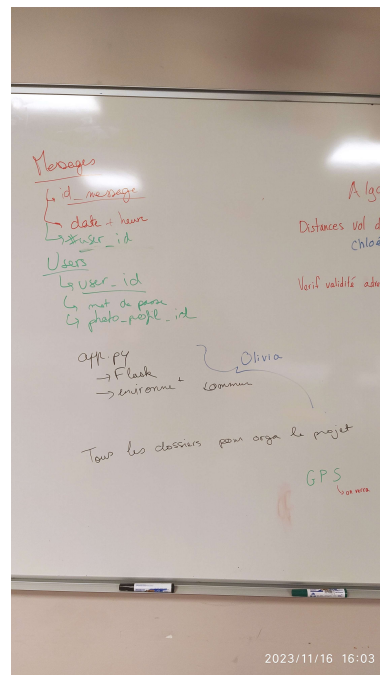 Messages
id_message
date + heure
*user_id
Users
user_id
mot de passe
photo_profil_id
app.py
→ Flask
→ environne^t commun
Olivia
Tous les dossiers pour orga le projet
Algo
Distances vol d
chloé
Verif validité adre
GPS
on verra
2023/11/16 16:03